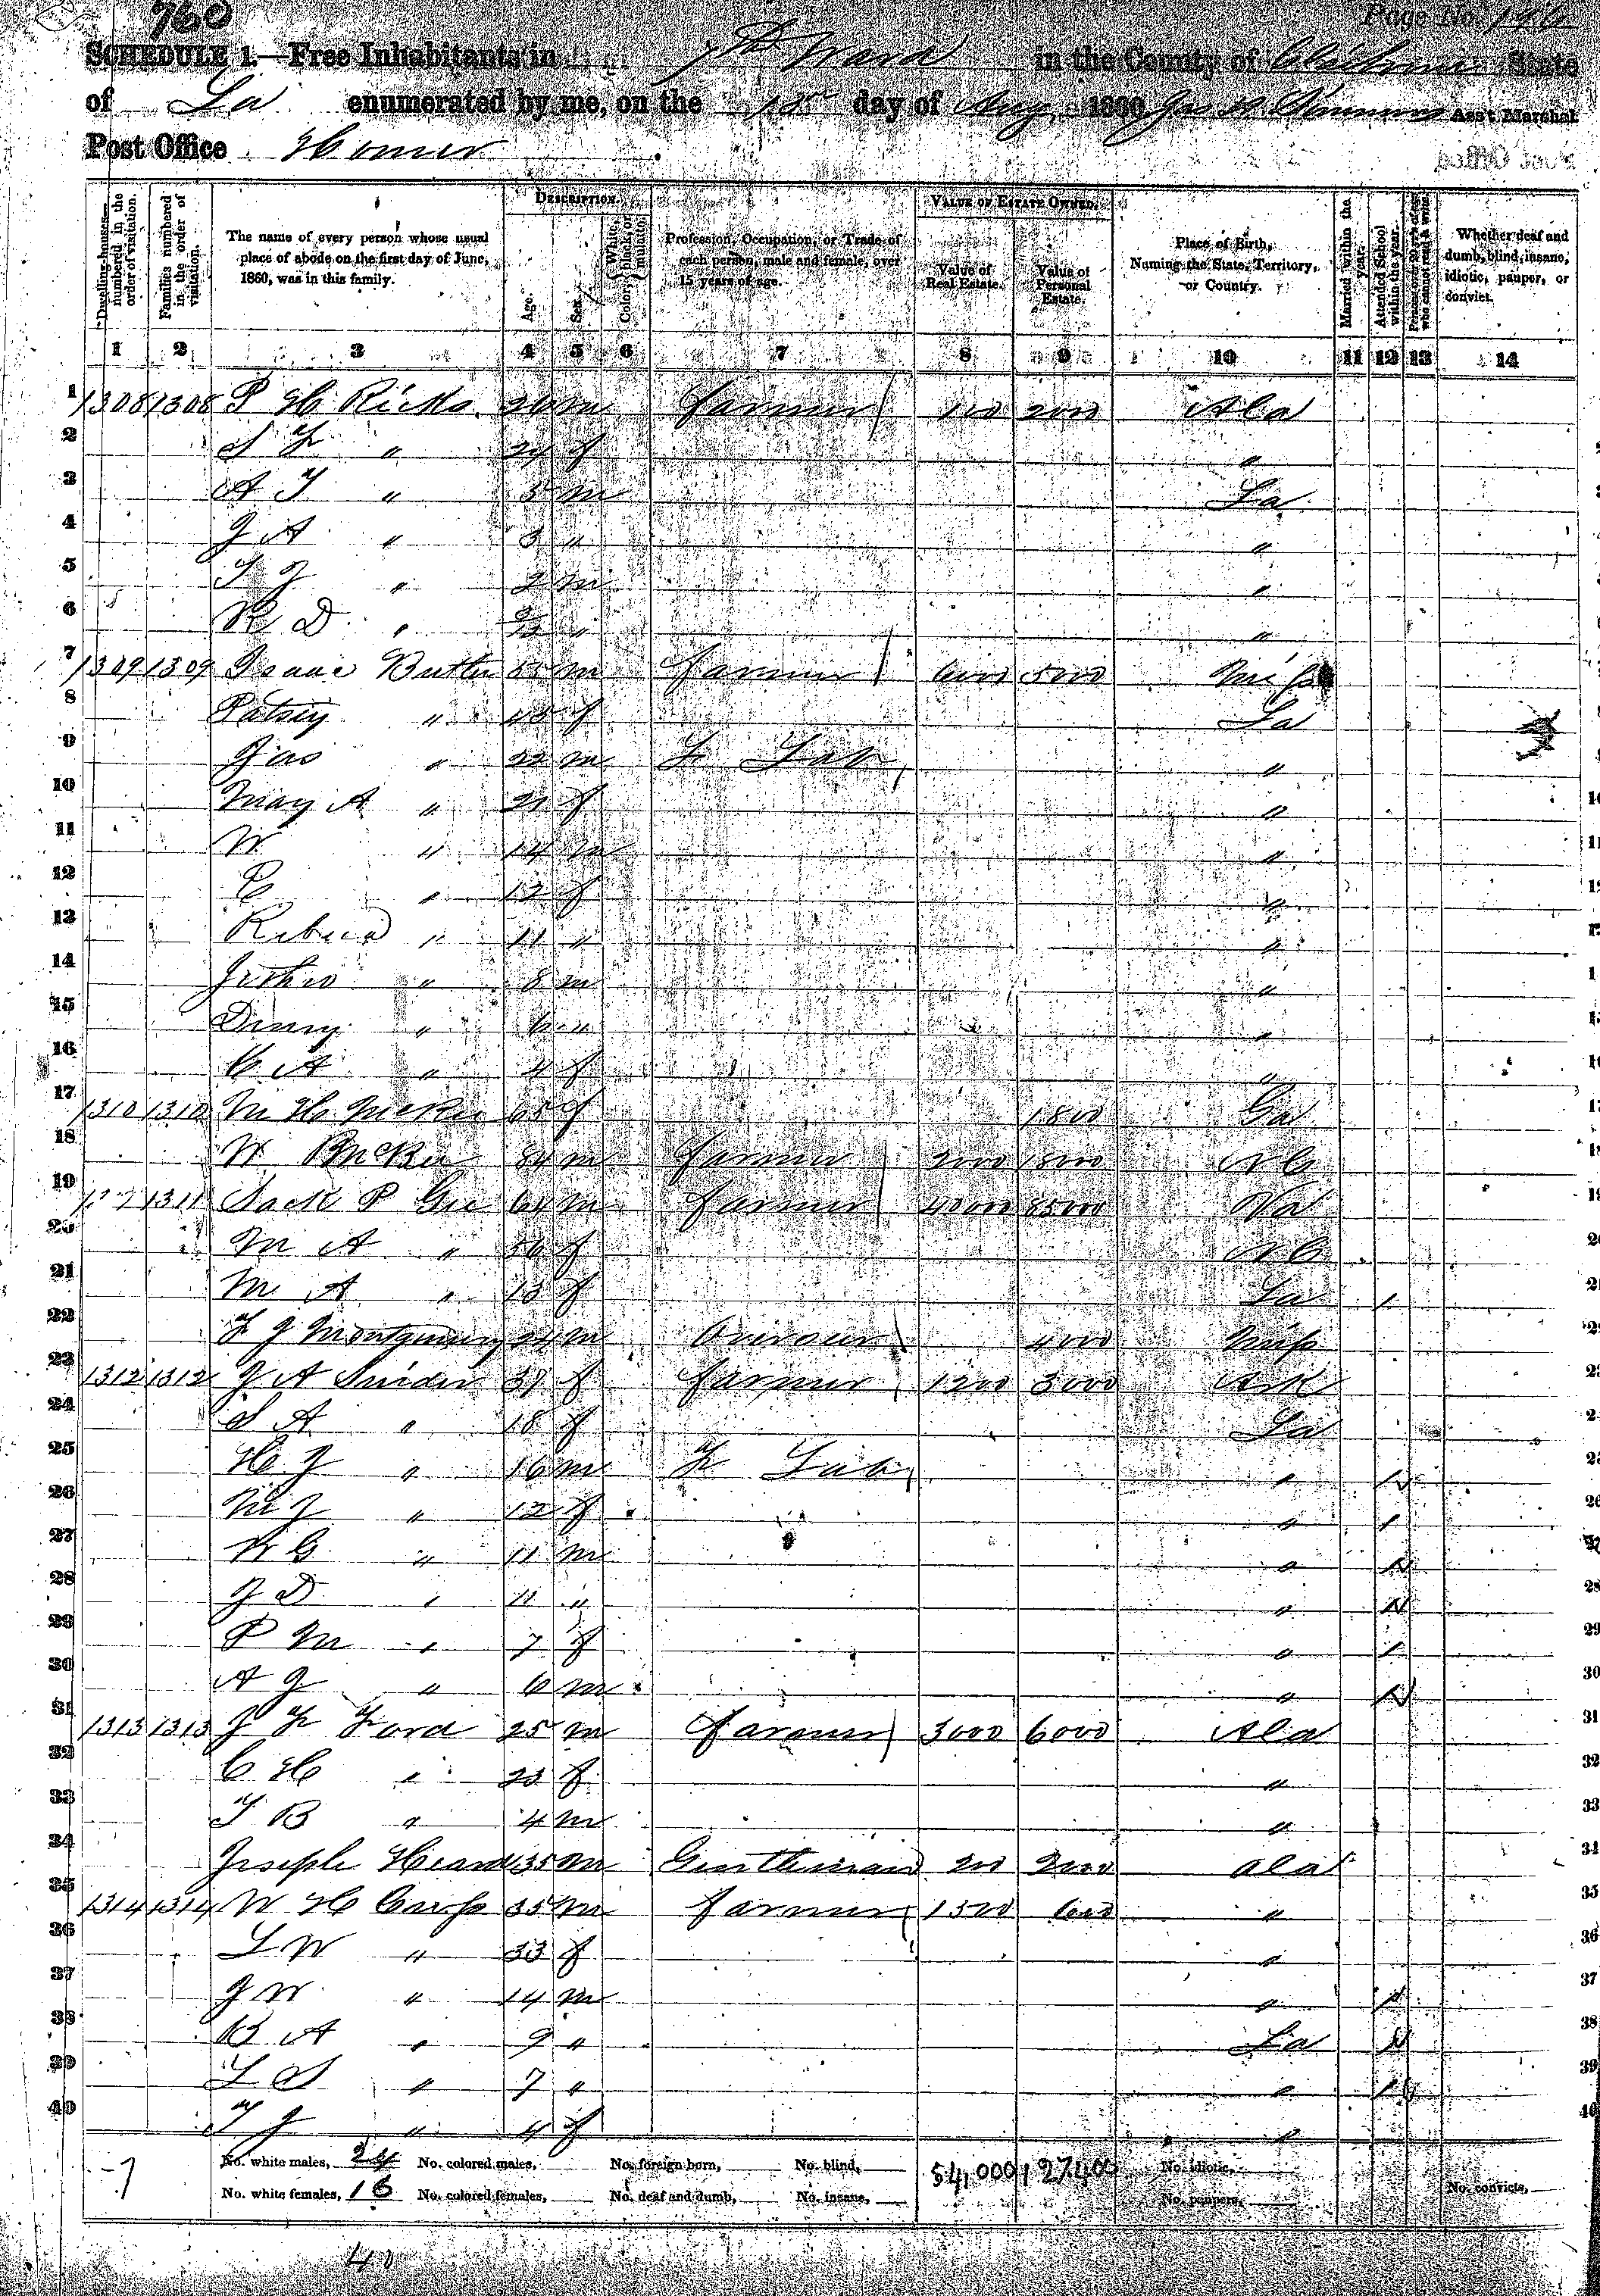 760
Page No. 196
SCHEDULE 1.—Free Inhabitants in 7th Ward in the County of Claiborne State
of La enumerated by me, on the 18th day of Aug 1860. Ass't Marshal
Post Office Homer
Dwelling-houses—numbered in the order of visitation.
Families numbered in the order of visitation.
The name of every person whose usual place of abode on the first day of June, 1860, was in this family.
DESCRIPTION.
Age.
Sex.
Color, White, black, or mulatto.
Profession, Occupation, or Trade of each person, male and female, over 15 years of age.
VALUE OF ESTATE OWNED.
Value of Real Estate.
Value of Personal Estate.
Place of Birth, Naming the State, Territory, or Country.
Married within the year.
Attended School within the year.
Persons over 20 y'rs of age who cannot read & write.
Whether deaf and dumb, blind, insane, idiotic, pauper, or convict.
1 2 3 4 5 6 7 8 9 10 11 12 13 14
1 1308 1308 P H Ricks 26 m Farmer 100 2000 Ala
2 S F " 24 f "
3 A J " 5 m La
4 J A " 3 " "
5 T J " 2 m "
6 R D " "  "
7 1309 1309 Isaac Butler 55 m Farmer 6000 5000 Miss
8 Patsey " 45 f La
9 Jas " 22 m F Lab "
10 Mary A " 21 f "
11 W " 14 m "
12 C " 12 f "
13 Rebeca " 11 " "
14 Jethro " 8 m "
15 Dinny " 6 " "
16 C A " 4 f "
17 1310 1310 M H McKee 65 f 1800 Ga
18 W McKee 34 m Farmer 2000 1800 N C
19 1311 Sack P Gee 64 m Farmer 40000 85000 Va
20 M A " 56 f N C
21 M A " 13 f La /
22 F J Montgomery 24 m Overseer 4000 Miss
23 1312 1312 J A Snider 37 f Farmer 1200 3000 Ark
24 S A " 18 f La
25 H J " 16 m F Lab "
26 M J " 12 f " /
27 R G " 11 m "
28 J D " 11 " "
29 P M " 7 f " /
30 A J " 6 m "
31 1313 1313 J F Ford 25 m Farmer 3000 6000 Ala
32 C H " 23 f "
33 T B " 4 m "
34 Joseph Heard 35 m Gentleman 200 2000 Ala
35 1314 1314 W H 35 m Farmer 1500 600 "
36 L W " 33 f "
37 J W " 14 m " /
38 B A " 9 " La
39 L S " 7 " " /
40 T J " 4 f "
No. white males, 24 No. colored males, No. foreign born, No. blind, 54,000 127400 No. idiotic,
No. white females, 16 No. colored females, No. deaf and dumb, No. insane, No. paupers, No. convicts,
40